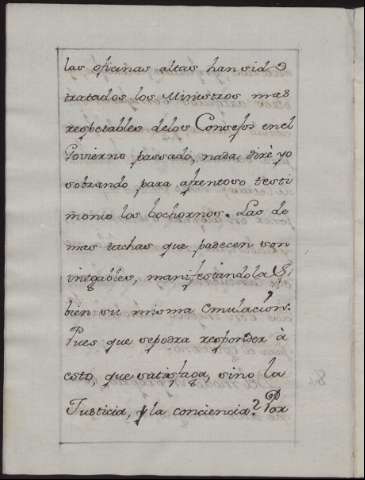 las oficinas altas han sido
tratados los Ministros mas
respetables delos Consejos en el
Govierno passado, nada diré yo
sobrando para afrentoso testi
monio los bochornos. Las de
mas tachas que padecen son
inegables, manifestandola
bien su misma emulacion.
Pues que sepodra responder à
esto, que satisfaga, sino la
Justicia, y la conciencia? Por